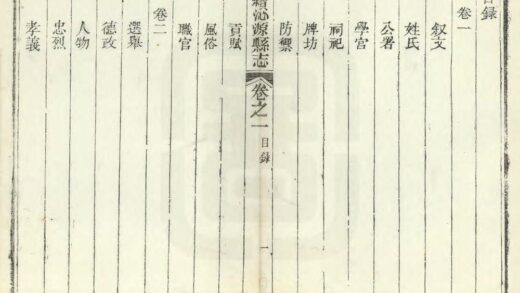 目録
卷一
叙文
姓氏
公署
學宫
祠祀
牌坊
防禦
續沁源縣志
卷之一
目錄
一
貢賦
風俗
職官
卷二
選舉
德政
人物
忠烈
孝義